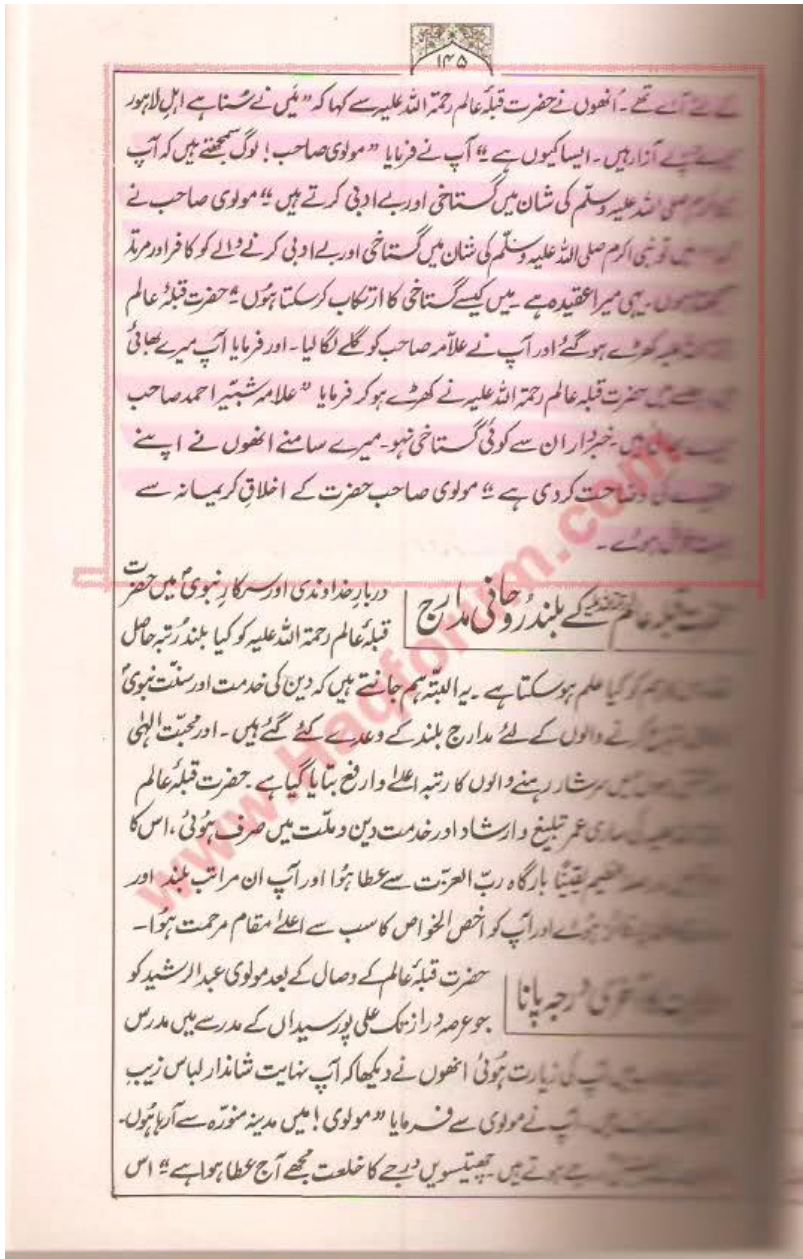 ۱۴۵
آئے تھے۔ اُنھوں نے حضرت قبلۂ عالم رحمۃ اللہ علیہ سے کہا کہ ”مَیں نے سُنا ہے اہلِ لاہور
آزار ہیں۔ ایسا کیوں ہے“ آپ نے فرمایا ”مولوی صاحب! لوگ سمجھتے ہیں کہ آپ
اکرم صلی اللہ علیہ وسلّم کی شان میں گستاخی اور بے ادبی کرتے ہیں“ مولوی صاحب نے
میں تو نبی اکرم صلی اللہ علیہ وسلّم کی شان میں گستاخی اور بے ادبی کرنے والے کو کافر اور مرتد
ہوں۔ یہی میرا عقیدہ ہے۔ میں کیسے گستاخی کا ارتکاب کر سکتا ہُوں“ حضرت قبلۂ عالم
کھڑے ہو گئے اور آپ نے علاّمہ صاحب کو گلے لگا لیا۔ اور فرمایا آپ میرے بھائی
میں حضرت قبلہ عالم رحمتہ اللہ علیہ نے کھڑے ہو کر فرمایا ”علامہ شبّیر احمد صاحب
ہیں۔ خبردار ان سے کوئی گستاخی نہو۔ میرے سامنے انھوں نے اپنے
کی وضاحت کر دی ہے“ مولوی صاحب حضرت کے اخلاقِ کریمانہ سے
ہوئے۔
قبلہ عالم کے بلند رُوحانی مدارج
دربارِ خداوندی اور سرکارِ نبوی میں حضرت
قبلہ عالم رحمۃ اللہ علیہ کو کیا بلند رُتبہ حاصل
ہم کو کیا علم ہو سکتا ہے۔ یہ البتّہ ہم جانتے ہیں کہ دین کی خدمت اور سنّت نبوی
کرنے والوں کے لئے مدارج بلند کے وعدے کئے گئے ہیں۔ اور محبّت الٰہی
میں سرشار رہنے والوں کا رتبہ اعلےٰ و ارفع بتایا گیا ہے۔ حضرت قبلۂ عالم
کی ساری عمر تبلیغ و ارشاد اور خدمت دین و ملّت میں صرف ہُوئی، اس کا
عظیم یقینًا بارگاہ ربّ العزّت سے عطا ہُوا اور آپ ان مراتب بلند اور
فائز ہُوئے اور آپ کو اخص الخواص کا سب سے اعلےٰ مقام مرحمت ہُوا۔
درجہ پانا
حضرت قبلۂ عالم کے وصال کے بعد مولوی عبدالرشید کو
جو عرصہ دراز تک علی پور سیداں کے مدرسے میں مدرس
آپ کی زیارت ہُوئی انھوں نے دیکھا کہ آپ نہایت شاندار لباس زیبِ
آپ نے مولوی سے فرمایا ”مولوی! میں مدینہ منوّرہ سے آ رہا ہُوں۔
ہوتے ہیں۔ چھتیسویں درجے کا خلعت مجھے آج عطا ہوا ہے“ اس
www.Haqforum.com